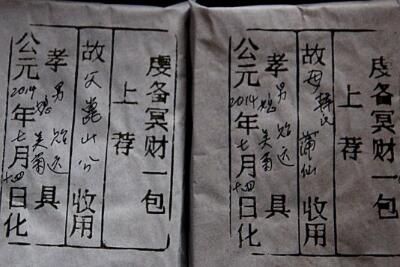 虔备冥财一包
上荐
故父山公收用
孝男始远
媳吴菊具
公元2014年七月十四日化
虔备冥财一包
上荐
故母氏蒲仙收用
孝男始远
媳吴菊具
公元2014年七月十四日化